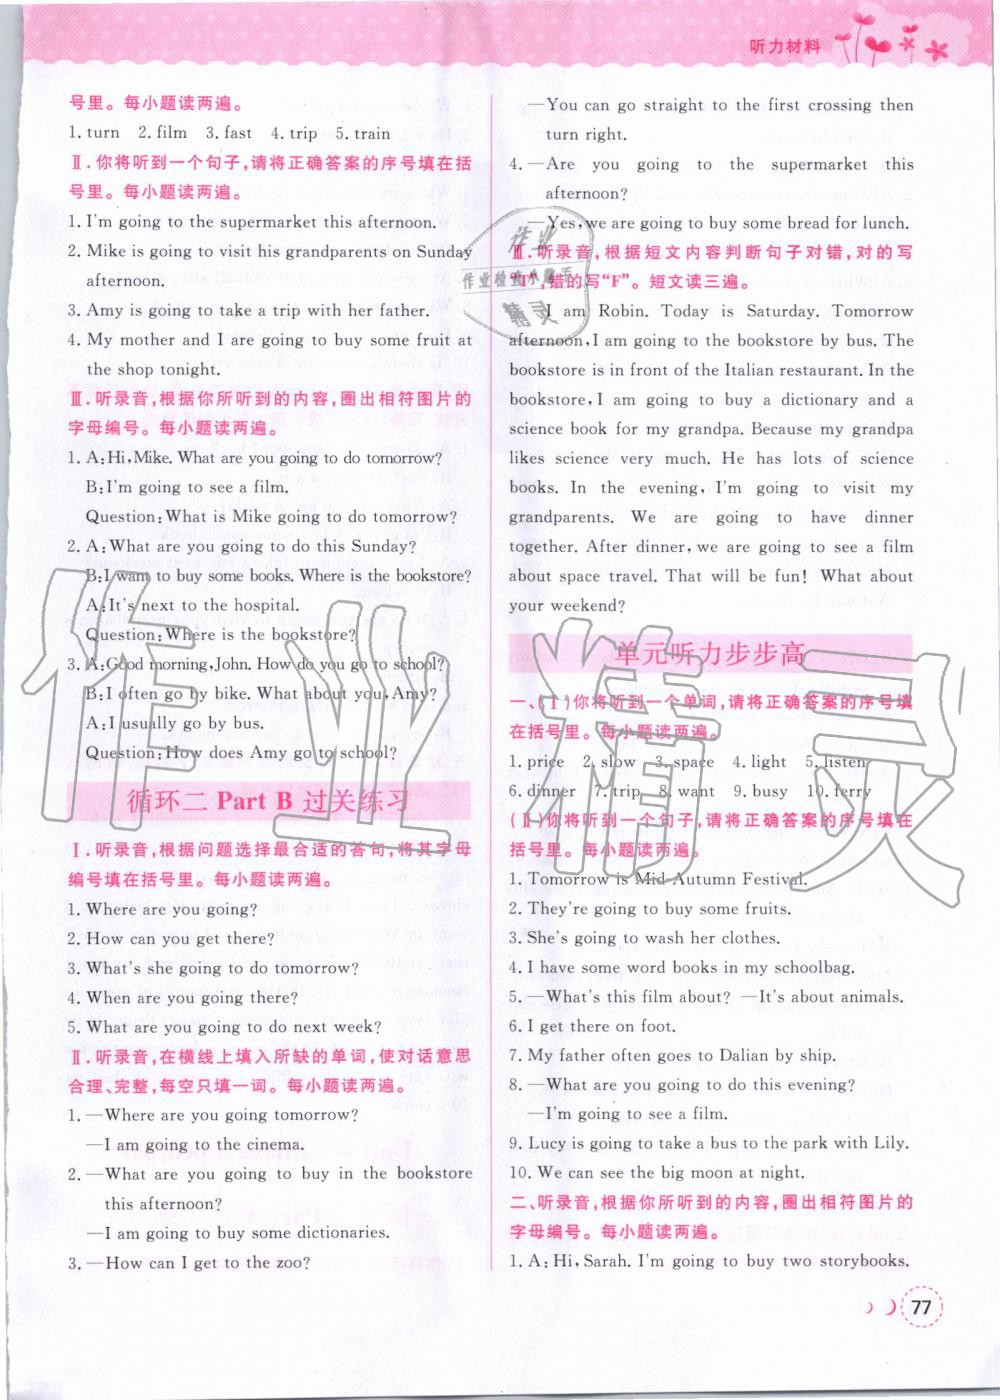 听力材料
号里。每小题读两遍。
1. turn 2. film 3. fast 4. trip 5. train
Ⅱ.你将听到一个句子,请将正确答案的序号填在括
号里。每小题读两遍。
1. I'm going to the supermarket this afternoon.
2. Mike is going to visit his grandparents on Sunday
afternoon.
3. Amy is going to take a trip with her father.
4. My mother and I are going to buy some fruit at
the shop tonight.
Ⅲ.听录音,根据你所听到的内容,圈出相符图片的
字母编号。每小题读两遍。
1. A:Hi,Mike. What are you going to do tomorrow?
B:I'm going to see a film.
Question:What is Mike going to do tomorrow?
2. A:What are you going to do this Sunday?
B:I want to buy some books. Where is the bookstore?
A:It's next to the hospital.
Question:Where is the bookstore?
3. A:Good morning,John. How do you go to school?
B:I often go by bike. What about you,Amy?
A:I usually go by bus.
Question:How does Amy go to school?
循环二 Part B 过关练习
Ⅰ.听录音,根据问题选择最合适的答句,将其字母
编号填在括号里。每小题读两遍。
1. Where are you going?
2. How can you get there?
3. What's she going to do tomorrow?
4. When are you going there?
5. What are you going to do next week?
Ⅱ.听录音,在横线上填入所缺的单词,使对话意思
合理、完整,每空只填一词。每小题读两遍。
1. —Where are you going tomorrow?
—I am going to the cinema.
2. —What are you going to buy in the bookstore
this afternoon?
—I am going to buy some dictionaries.
3. —How can I get to the zoo?
—You can go straight to the first crossing then
turn right.
4. —Are you going to the supermarket this
afternoon?
—Yes,we are going to buy some bread for lunch.
Ⅲ.听录音,根据短文内容判断句子对错,对的写
“T”,错的写“F”。短文读三遍。
I am Robin. Today is Saturday. Tomorrow
afternoon,I am going to the bookstore by bus. The
bookstore is in front of the Italian restaurant. In the
bookstore,I am going to buy a dictionary and a
science book for my grandpa. Because my grandpa
likes science very much. He has lots of science
books. In the evening, I'm going to visit my
grandparents. We are going to have dinner
together. After dinner,we are going to see a film
about space travel. That will be fun! What about
your weekend?
单元听力步步高
一、(Ⅰ)你将听到一个单词,请将正确答案的序号填
在括号里。每小题读两遍。
1. price 2. slow 3. space 4. light 5. listen
6. dinner 7. trip 8. want 9. busy 10. ferry
(Ⅱ)你将听到一个句子,请将正确答案的序号填在
括号里。每小题读两遍。
1. Tomorrow is Mid-Autumn Festival.
2. They're going to buy some fruits.
3. She's going to wash her clothes.
4. I have some word books in my schoolbag.
5. —What's this film about? —It's about animals.
6. I get there on foot.
7. My father often goes to Dalian by ship.
8. —What are you going to do this evening?
—I'm going to see a film.
9. Lucy is going to take a bus to the park with Lily.
10. We can see the big moon at night.
二、听录音,根据你所听到的内容,圈出相符图片的
字母编号。每小题读两遍。
1. A:Hi,Sarah. I'm going to buy two storybooks.
77
作业精灵
作业
作业检查小能手
精灵